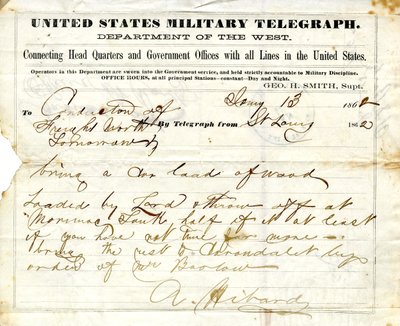 UNITED STATES MILITARY TELEGRAPH.
DEPARTMENT OF THE WEST.
Connecting Head Quarters and Government Offices with all Lines in the United States.
Operators in this Department are sworn into the Government service, and held strictly accountable to Military Discipline.
OFFICE HOURS, at all principal Stations—constant—Day and Night.
GEO. H. SMITH, Supt.
Jany 13 1862
To Conductor of
Freight North By Telegraph from St Louis 1862
Tomorrow
bring a Car load of wood
Loaded by Lord & throw off at
Tank half of it at least
if you have not time for more
bring the rest to Carondalet by
order of Mr Barlow
A. Hibard